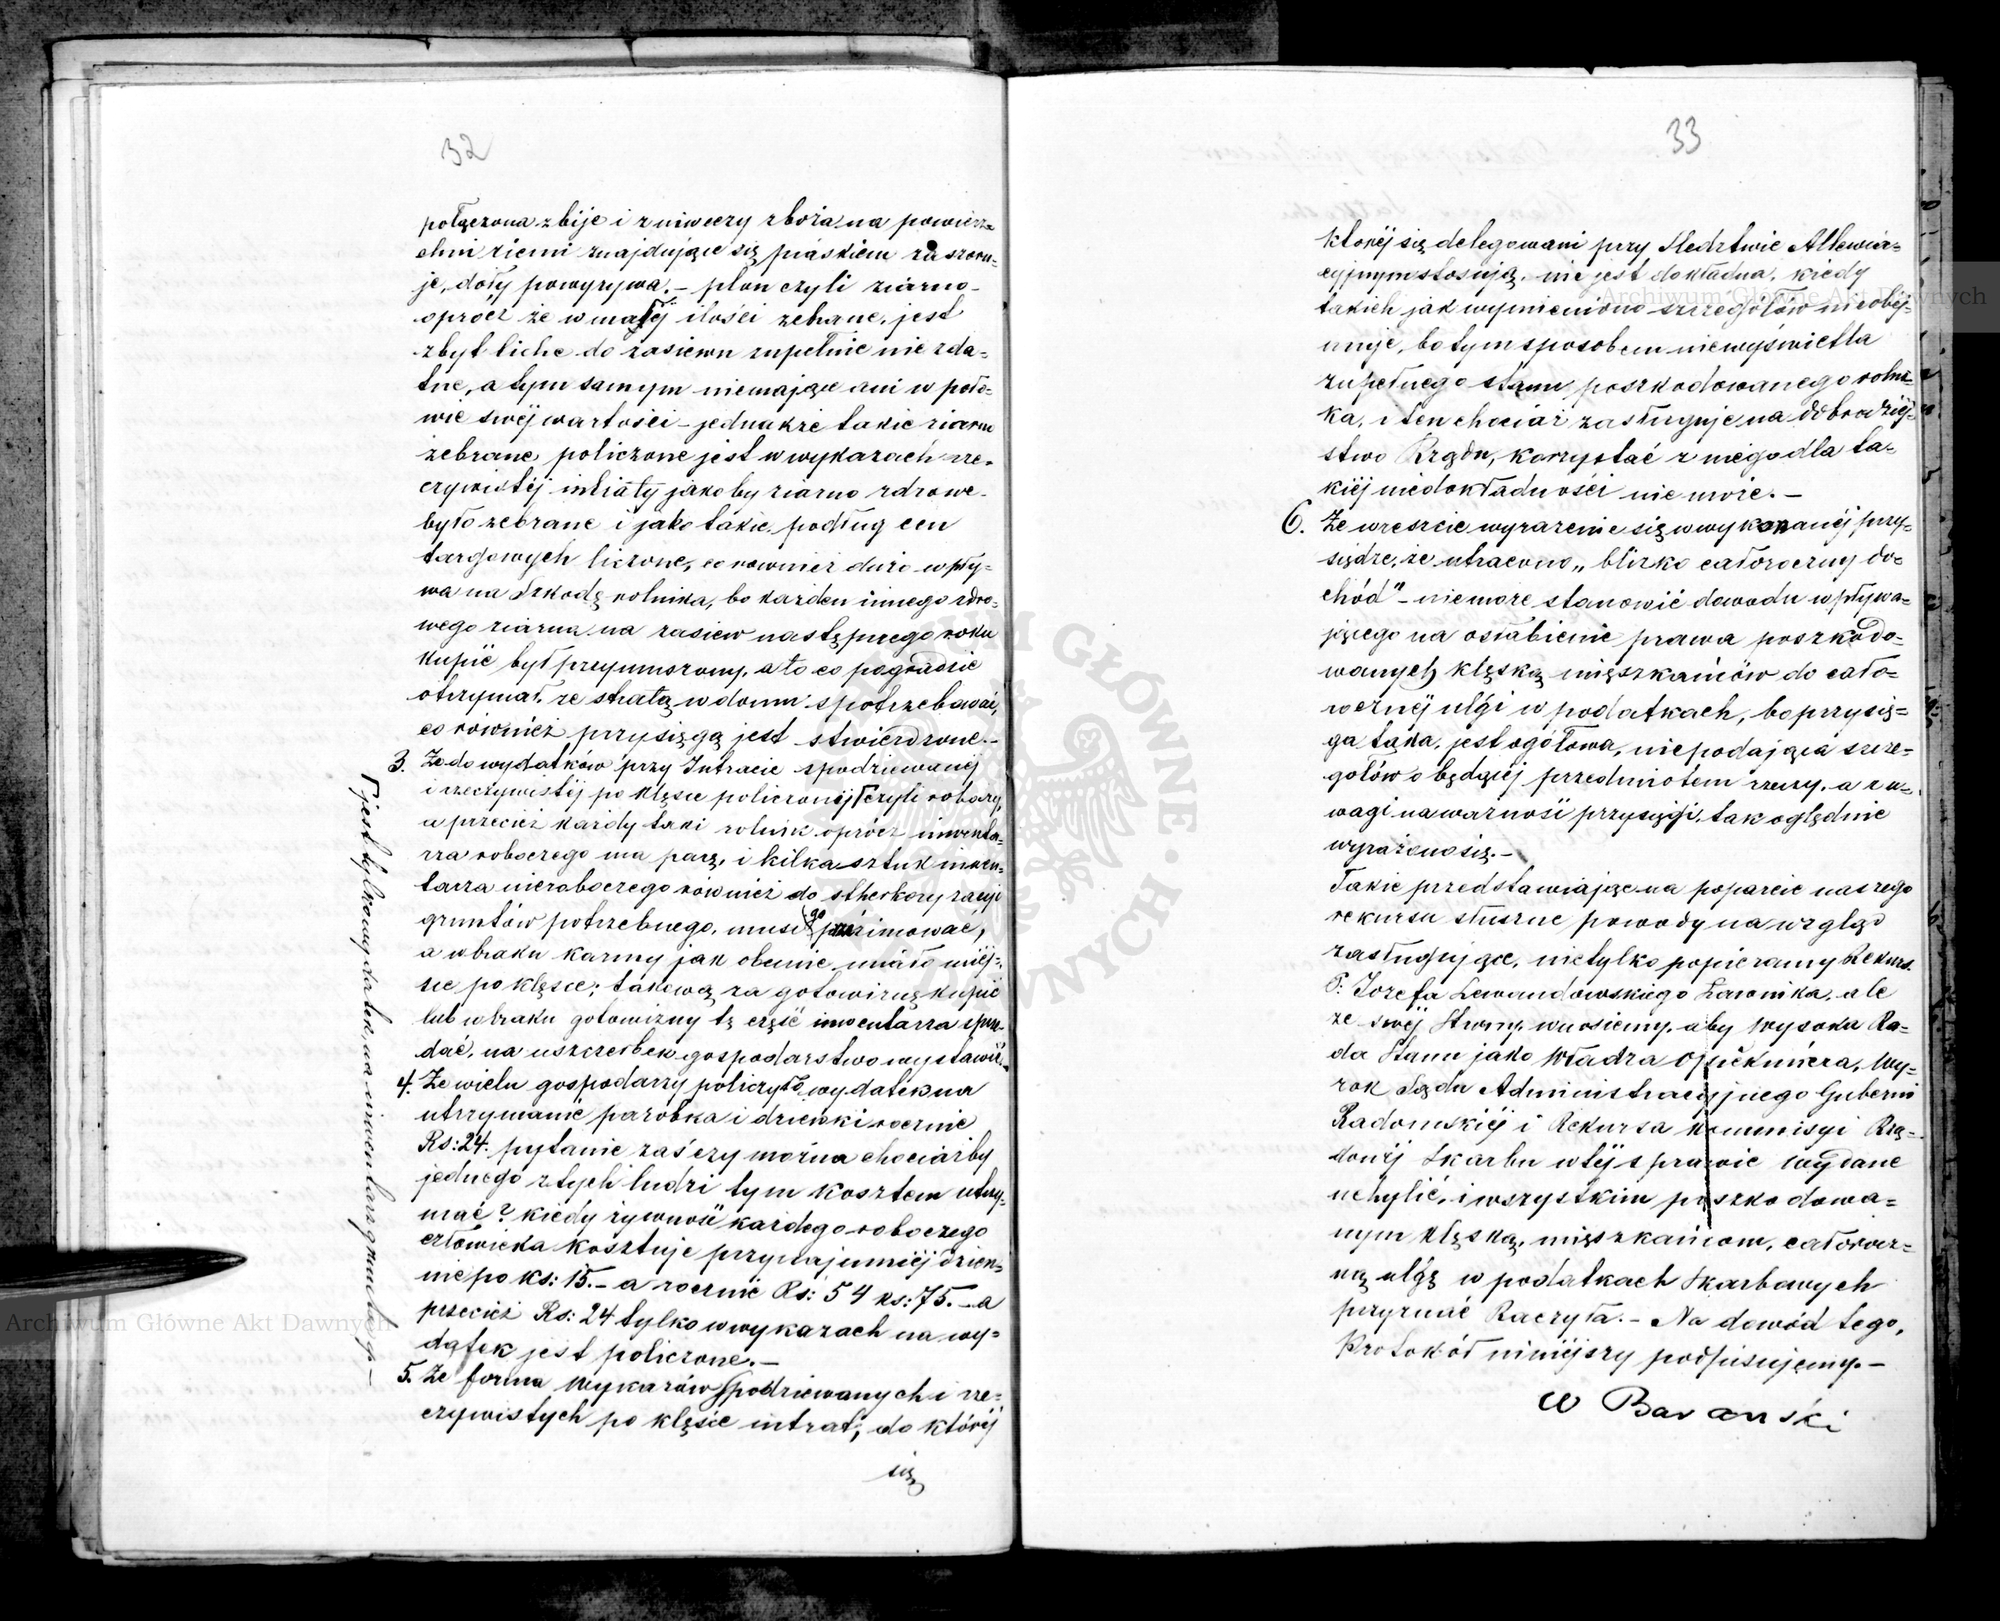 32
połączona zbije i zniweczy zboża na powierz=
chni ziemi znajdujące się piaskiem zaszoru=
je, doły powyrywa. – plon czyli ziarno
oprócz że w małéj ilości zebrane, jest
zbyt liche do zasiewu zupełnie nie zda=
tne, a tym samym niemające ani w poło=
wie swéj wartości – jednakże takie ziarno
zebrane, policzone jest w wykazach rze=
czywistéj intraty jako by ziarno zdrowe
było zebrane i jako takie podług cen
targowych liczone, co rownież dużo wpły=
wa na szkodę rolnika, bo każden innego zdro=
wego ziarna na zasiew następnego roku
kupić był przymuszony, a to co pogradzie
otrzymał, ze stratą w domu spotrzebował,
co również przysięgą jest stwierdzone. –
3. Że do wydatków przy Intracie spodziewanéj
i rzeczywistéj po klęsce policzonéj Γ czyli roboczy,
a przecież każdy taki rolnik oprócz inwenta=
rza roboczego ma parę, i kilka sztuk inwen=
tarza nieroboczego również do sterkory zacyi
gruntów potrzebnego, musi go przezimować,
a w braku karmy jak obecnie miało miéj=
sce po klęsce; takową za gotowiznę kupić
lub w braku gotowizny tę część inwentarza sprze=
dać, na uszczerbek gospodarstwo wystawić. –
4. Że wielu gospodarzy policzyło wydatek na
utrzymanie parobka i dziewki rocznie
Rs: 24. pytanie zaś czy można chociażby
jednego z tych ludzi tym kosztem utrzy=
mać? kiedy żywność każdego roboczego
człowieka kosztuje przynajmniéj dzien=
nie po ks: 15. – a rocznie Rs: 54 ks: 75. – a
przecież Rs: 24 tylko w wykazach na wy=
datek jest policzone. –
5. Że forma wykazów spodziewanych i rze=
czywistych po klęsce intrat, do któréj
się
Γ jest tylko wydatek na inwentarz gruntowy –
33
któréj się delegowani przy Śledztwie Allewia=
cyjnym stosują, nie jest dokładna, kiedy
takich jak wymieniono szczegółów nie obéj=
muje, bo tym sposobem niewyświetla
zupełnego stanu poszkodowanego rolni=
ka, i ten chociaż zasługuje na dobrodziéj=
stwo Rządu, korzystać z niego dla ta=
kiéj niedokładności nie może. –
6. Że wreszcie wyrażenie się w wykonanéj przy=
siędze, że utracono „blizko całoroczny do=
chód" – niemoże stanowić dowodu wpływa=
jącego na osłabienie prawa poszkodo=
wanych klęską mięszkańców do cało=
rocznéj ulgi w podatkach, bo przysię=
ga taka, jest ogółowa, niepodająca szcze=
gołów o będącéj przedmiotem rzeczy, a z u=
wagi na ważność przysięgi, tak oględnie
wyrażono się. –
Takie przedstawiając na poparcie naszego
rekursu słuszne powody na wzgląd
zasługujące, nietylko popieramy Rekurs
P. Jozefa Lewandowskiego Ławnika, ale
ze swéj strony wnosiemy, aby Wysoka Ra=
da Stanu jako Władza Opiekuńcza, Wy=
rok Sądu Administracyjnego Gubernii
Radomskiéj i Rekursa Kommisyi Rzą=
dowéj Skarbu w téj sprawie wydane
uchylić, i wszystkim poszkodowa=
nym klęską, mięszkańcom, całorocz=
ną ulgę w podatkach Skarbowych
przyznać Raczyła. – Na dowód tego,
Protokół niniéjszy podpisujemy. –
W Barański